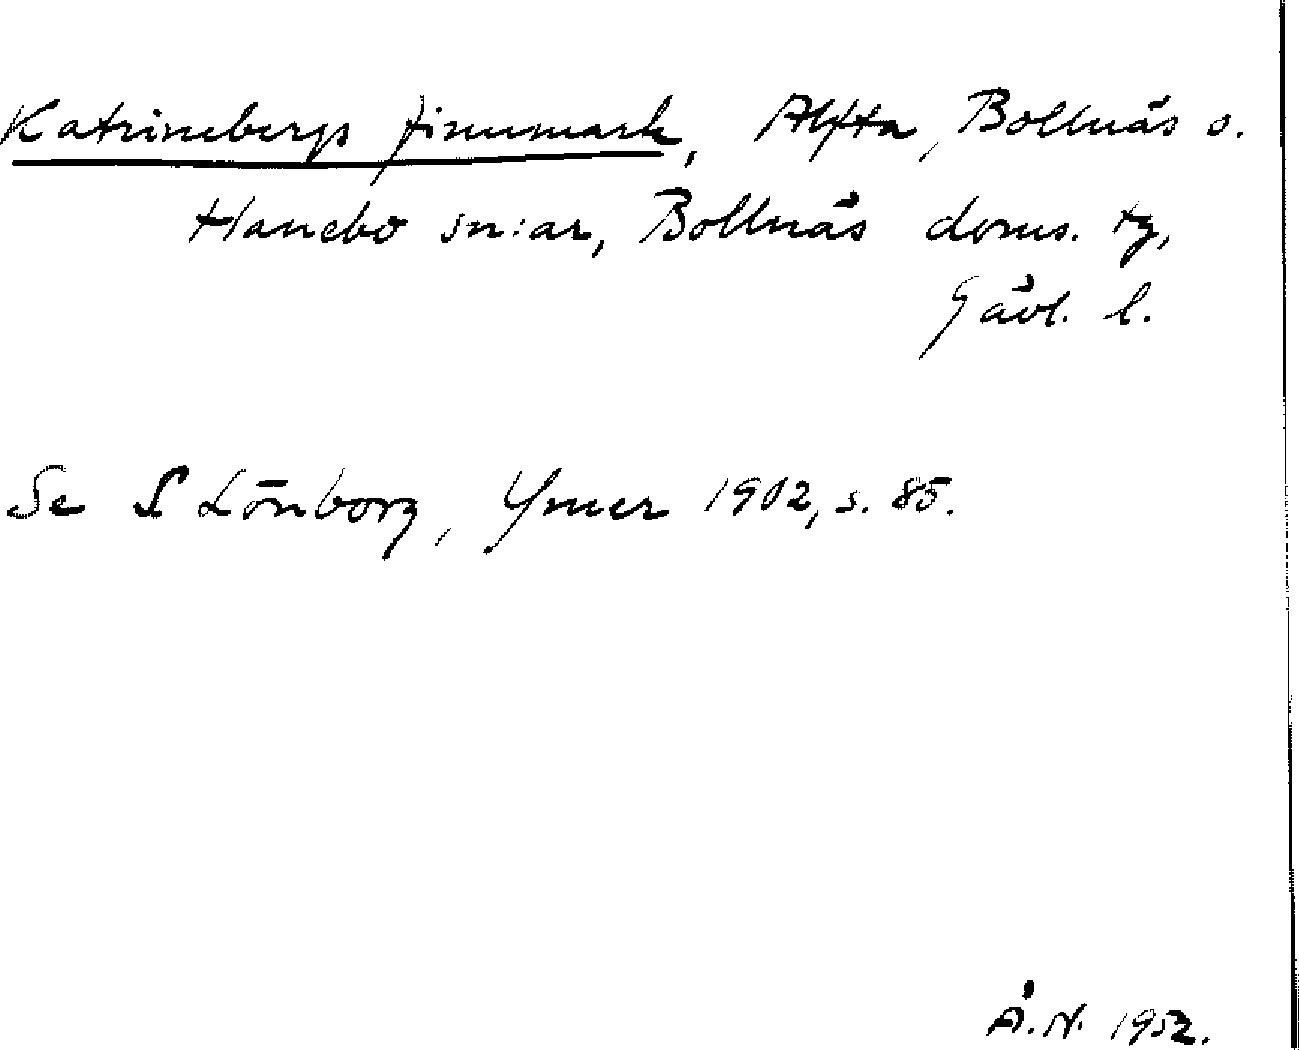 Katrinebergs finnmark, Alfta, Bollnäs o.
Hanebo sn:ar, Bollnäs doms. tg,
Gävl. l.
Se S Lönborg, Ymer 1902, s. 85.
Å.N. 1952.